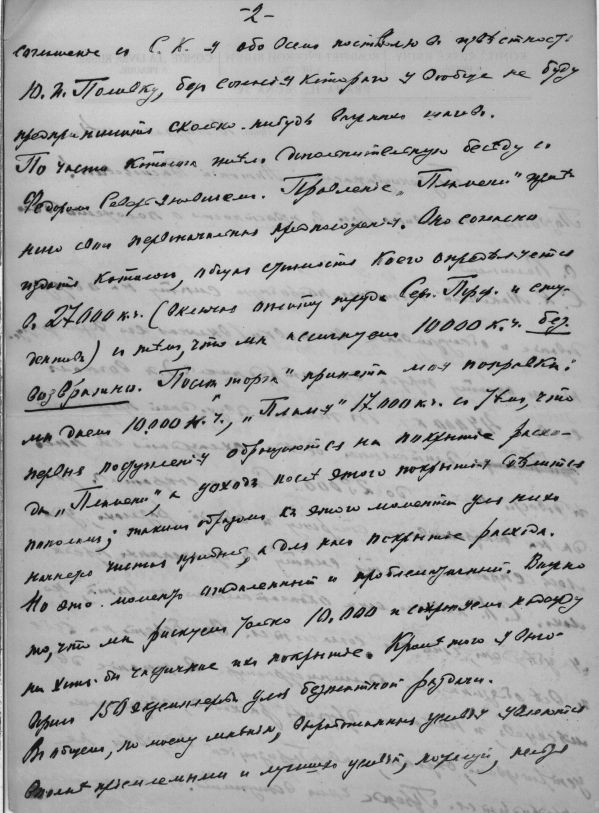 -2-
соглашение с С. К. я обо всем поставлю в известность
Ю. И. Поливку, без согласия которого я вообще не буду
предпринимать сколько-нибудь важных шагов.
По части каталога имел дополнительную беседу с
Федором Северьяновичем. Правление „Пламени"
него свои первоначальные предположения. Оно согласно
издать каталог, общая стоимость коего определяется
в 27000 к.ч. (включая оплату труда Сер. Перф. и
) с тем, что мы ассигнуем 10000 к.ч. без
возвратно. После торга принята моя поправка:
мы даем 10.000 к.ч., „Пламя" 17.000 кч. с тем, что
первыя поступления обращаются на покрытие расхо-
да „Пламени", а доход после этого покрытия делится
пополам; таким образом с этого момента для них
начнется чистая прибыль, а для нас покрытие расхода.
Но это момент отдаленный и проблематичный. Важно
то, что мы рискуем только 10.000 и сохраняем надежду
на хотя бы частичное их покрытие. Кроме того я огово-
орил 150 экземпляров для безплатной раздачи.
В общем, по моему мнению, выработанные условия являются
вполне приемлемыми и лучших условий, пожалуй, нельзя